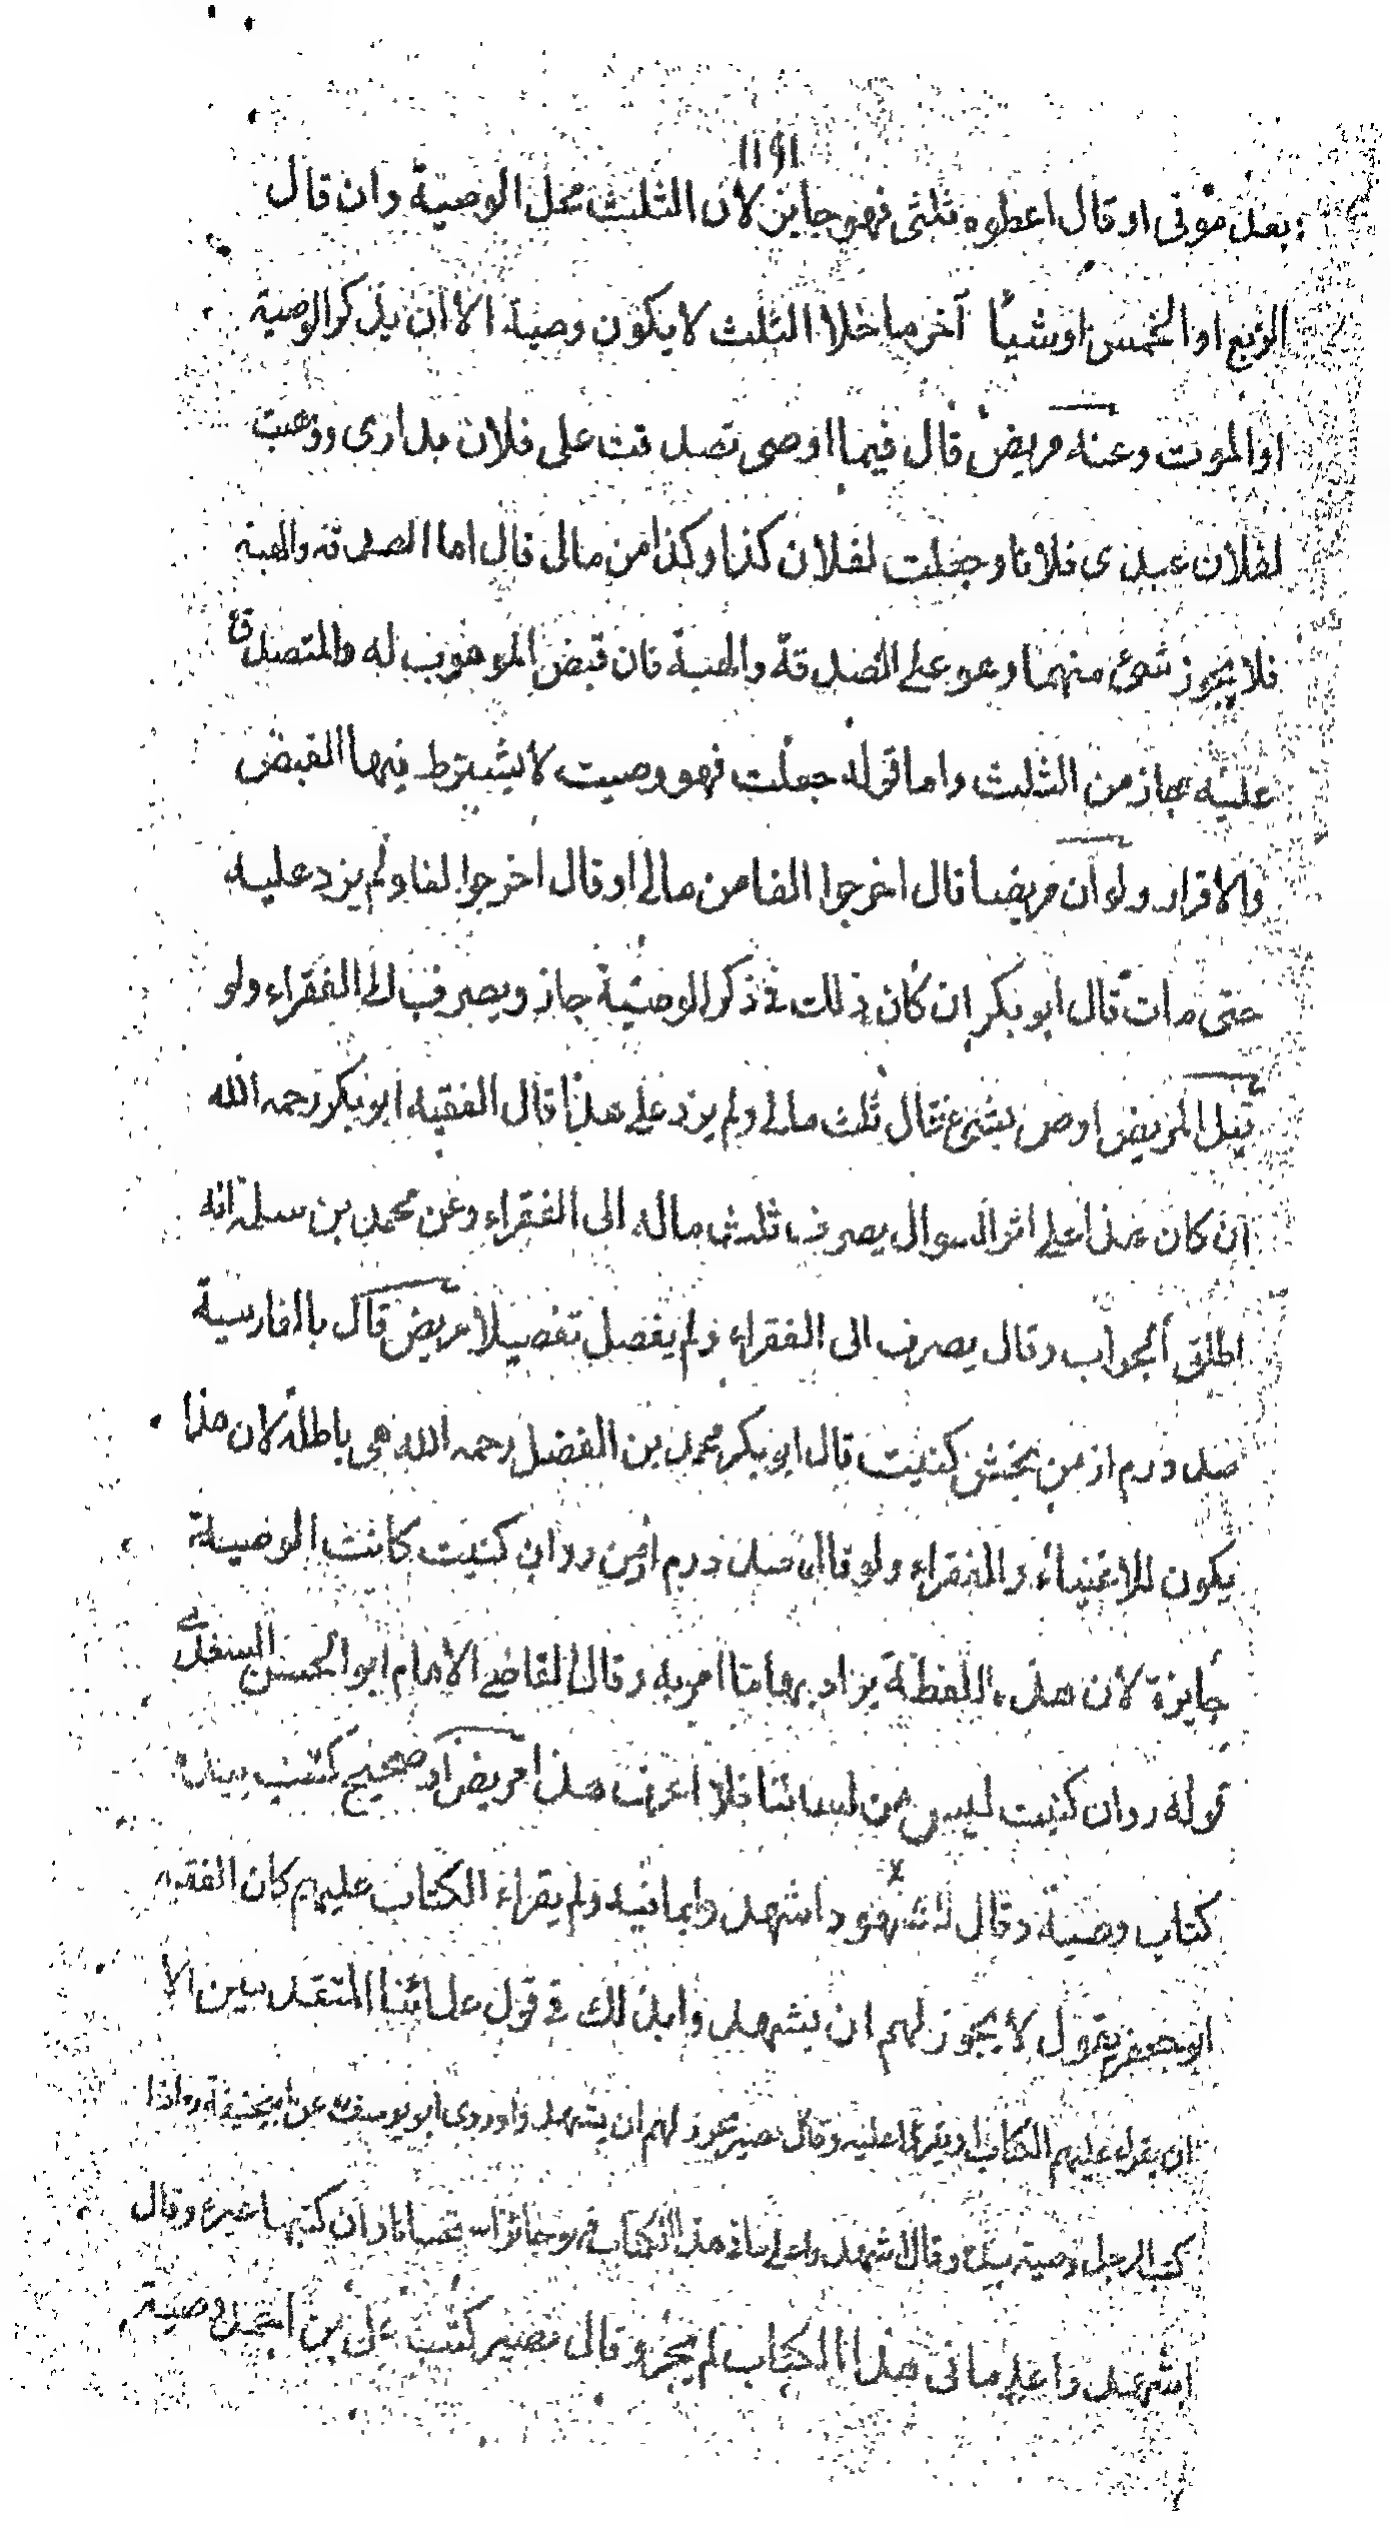 ١١٩١
بعد موتى او قال اعطوه ثلثى فهو جايز لان الثلث محل الوصية وان قال
الربع او الخمس او شيأ آخر ما خلا الثلث لا يكون وصية الا ان يذكر الوصية
او الموت وعنه مريض قال فيما اوصى تصدقت على فلان بدارى ووهبت
لفلان عبدى فلانا وجعلت لفلان كذا وكذا من مالى قال اما الصدقة والهبة
فلا يجوز شئ منهما وهو على الصدقة والهبة فان قبض الموهوب له والمتصدق
عليه جاز من الثلث واما قوله جعلت فهو وصيت لا يشترط فيها القبض
والاقرار ولو ان مريضا قال اخرجوا الفا من مالى او قال اخرجوا الفا ولم يزد عليه
حتى مات قال ابو بكر ان كان ذلك في ذكر الوصية جاز ويصرف الى الفقراء ولو
قيل المريض اوص بشئ فقال ثلث مالى ولم يزد على هذا قال الفقيه ابو بكر رحمه الله
ان كان هذا على اثر السوال يصرف ثلث ماله الى الفقراء وعن محمد بن سلمة انه
اطلق الجواب وقال يصرف الى الفقراء ولم يفصل تفصيلا مريض قال بالفارسية
صد درم از من بخشش كنيت قال ابو بكر محمد بن الفضل رحمه الله هى باطلة لان هذا
يكون للاغنياء والفقراء ولو قال صد درم از من روان كنيت كانت الوصية
جايزة لان هذه اللفظة يراد بها ما امر به وقال القاضى الامام ابو الحسن السغدى
قوله روان كنيت ليس من لساننا فلا اعرف هذا مريض او صحيح كتب بيده
كتاب وصية وقال للشهود اشهدوا بما فيه ولم يقراء الكتاب عليهم كان الفقيه
ابو جعفر يقول لا يجوز لهم ان يشهدوا بذلك في قول علمائنا المتقدمين الا
ان يقراء عليهم الكتاب او يقرؤا عليه وقال نصير يجوز لهم ان يشهدوا وروى ابو يوسف عن ابى حنيفة اذا
كتب الرجل وصية بيده وقال اشهدوا على ما فى هذا الكتاب فهو جائز وان كتبها غيره وقال
اشهدوا على ما فى هذا الكتاب لم يجز وقال نصير كتب بن احمد وصية